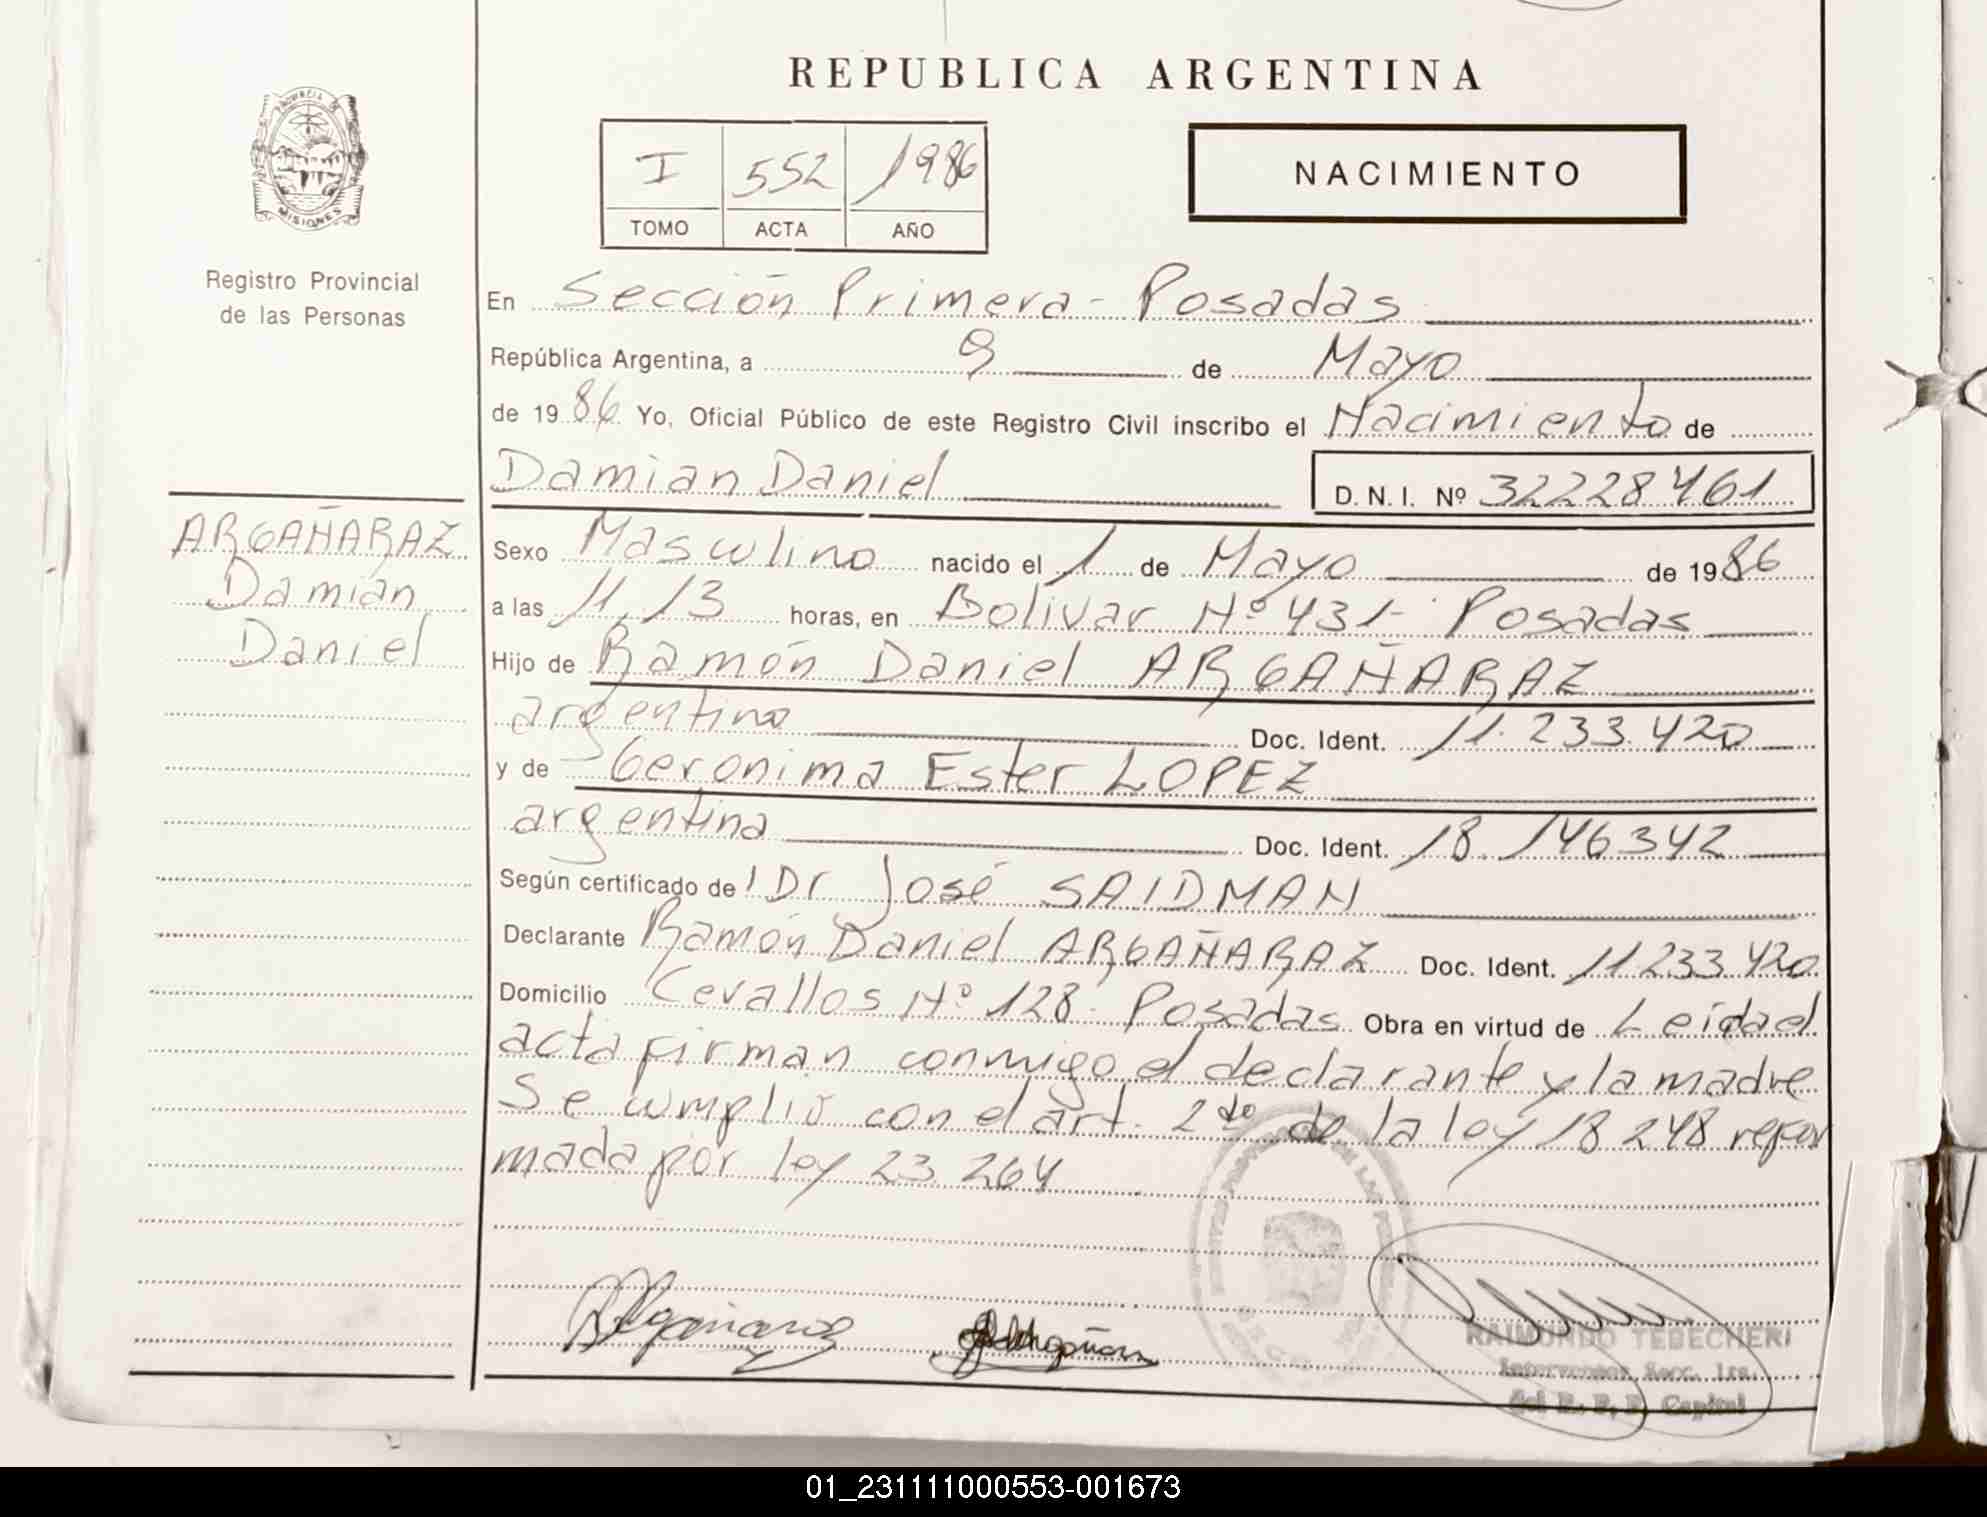 REPUBLICA ARGENTINA
PROVINCIA DE
MISIONES
Registro Provincial
de las Personas
I 552 1986
TOMO ACTA AÑO
NACIMIENTO
En Sección Primera - Posadas
República Argentina, a 9 de Mayo
de 1986 Yo, Oficial Público de este Registro Civil inscribo el Nacimiento de
Damian Daniel D. N. I. Nº 32228461
ARGAÑARAZ
Damián
Daniel
Sexo Masculino nacido el 1 de Mayo de 1986
a las 11,13 horas, en Bolivar Nº 431 - Posadas
Hijo de Ramón Daniel ARGAÑARAZ
argentino Doc. Ident. 11.233.420
y de Geronima Ester LOPEZ
argentina Doc. Ident. 18.146342
Según certificado de Dr José SAIDMAN
Declarante Ramón Daniel ARGAÑARAZ Doc. Ident. 11233.420
Domicilio Cevallos Nº 128 - Posadas Obra en virtud de Leida el
acta firman conmigo el declarante y la madre
Se cumplió con el art. 2do de la ley 18248 refor
mada por ley 23.264
RAIMUNDO TEBECHERI
Interventor Secc. 1ra.
del R. P. P. Capital
01_231111000553-001673